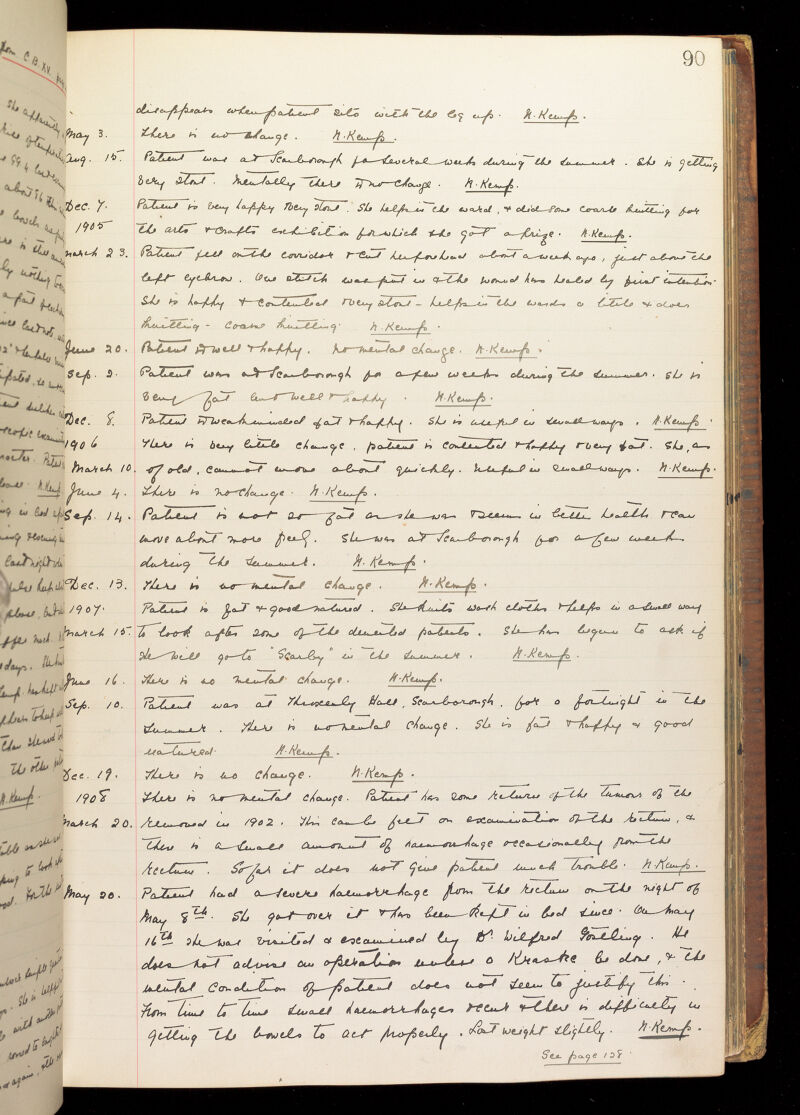 90
disappears when patient sits with the leg up. N. Kemp.
May 3. There is no change. N. Kemp.
Aug. 15. Patient was at Scarborough for several weeks during the summer. She is getting
very stout. Mentally there is no change. N. Kemp.
Dec. 7. Patient is very happy & very stout. She helps in the ward, & did some coarse knitting for
1905 the arts & crafts exhibition for which she got a prize. N. Kemp.
March 23. Patient fell on the corridor & cut her forehead about a week ago, just above the
left eyebrow. One stitch was put in & the wound has healed by first intention.
She is happy & contented & very stout - helps in the wards a little & does
knitting - coarse knitting. N. Kemp.
June 20. Patient is well & happy. No mental change. N. Kemp.
Sep. 2. Patient was at Scarborough for a few weeks during the summer. She is
very fat but well & happy. N. Kemp.
Dec. 8. Patient is weakminded fat & happy. She is useful in small ways. N. Kemp.
1906 There is very little change, patient is contented & happy & very fat. She, as
March 10. of old, cannot move about quickly. Useful in small ways. N. Kemp.
June 4. There is no change. N. Kemp.
Sep. 14. Patient is not so fat as she was & seems in better health & can
move about more freely. She was at Scarborough for a few weeks
during the summer. N. Kemp.
Dec. 13. There is no mental change. N. Kemp.
1907. Patient is fat & good natured. She knits wash cloths & helps in a small way
March 15. to look after some of the demented patients. She has begun to ask if
she will go to "Scarby" in the summer. N. Kemp.
June 16. There is no mental change. N. Kemp.
Sep. 10. Patient was at Throxenby Hall, Scarborough, for a fortnight in the
summer. There is no mental change. She is fat & happy & good
natured. N. Kemp.
Dec. 19. There is no change. N. Kemp.
1908 There is no mental change. Patient has some return of the tumour of the
March 20. removed in 1902. This can be felt on examination of the rectum, &
there is a small amount of haemorrhage occasionally from the
rectum. So far it does not give patient much trouble. N. Kemp.
May 20. Patient had a severe haemorrhage from the rectum on the night of
May 8th. She got over it & has been kept in bed since. On May
16th she was visited & examined by Dr. Wilfred Gosling. He
does not advise an operation unless a Kraske be done, & the
mental condition of patient does not seem to justify this.
From time to time small haemorrhages occur & there is difficulty in
getting the bowels to act properly. Lost weight slightly. N. Kemp.
See page 128.